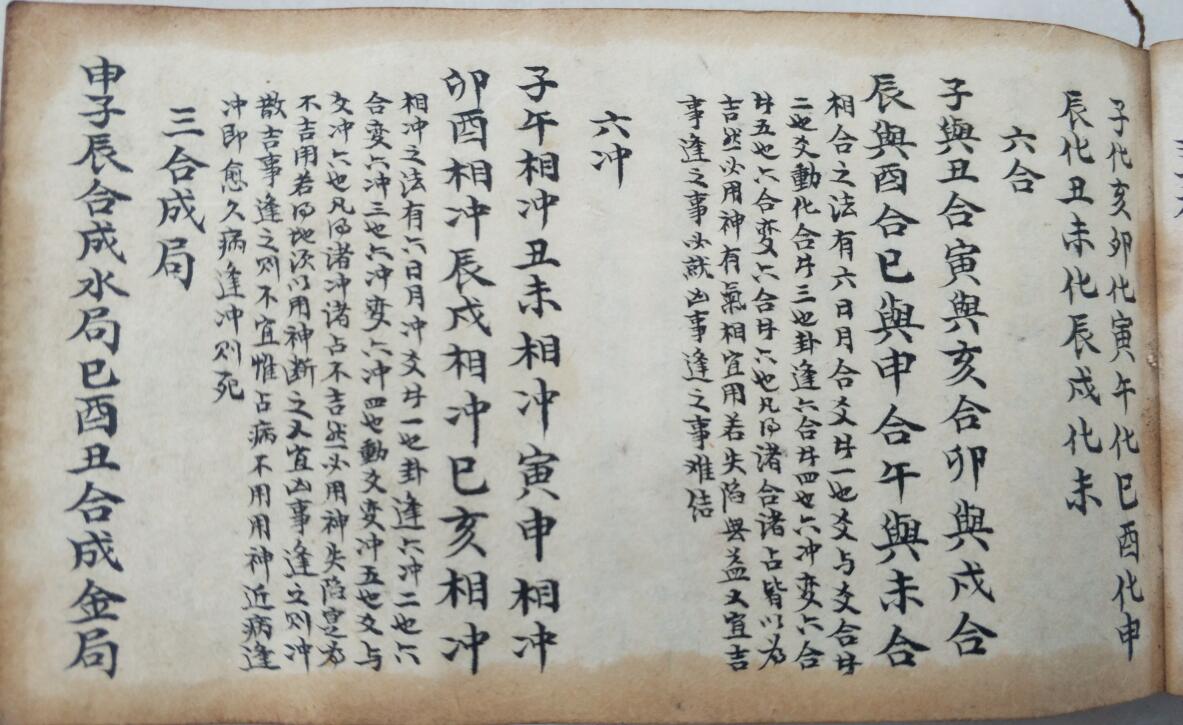 子化亥卯化寅午化巳酉化申
辰化丑未化辰戌化未
六合
子與丑合寅與亥合卯與戌合
辰與酉合巳與申合午與未合
相合之法有六日月合爻廾一也爻与爻合廾
二也爻動化合廾三也卦逢六合廾四也六冲变六合
廾五也六合变六合廾六也凡得诸合诸占皆以为
吉然必用神有氣相宜用若失陷無益又宜吉
事逢之事必就凶事逢之事难结
六冲
子午相冲丑未相冲寅申相冲
卯酉相冲辰戌相冲巳亥相冲
相冲之法有六日月冲爻廾一也卦逢六冲二也六
合变六冲三也六冲变六冲四也動爻变冲五也爻与
爻冲六也凡得诸冲诸占不吉然必用神失陷寔为
不吉用若得地须以用神断之又宜凶事逢之则冲
散吉事逢之则不宜惟占病不用用神近病逢
冲即愈久病逢冲则死
三合成局
申子辰合成水局巳酉丑合成金局